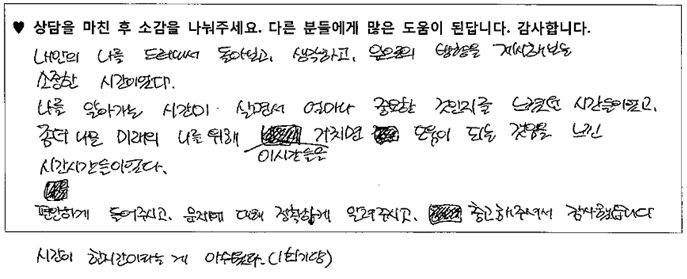 ♥ 상담을 마친 후 소감을 나눠주세요. 다른 분들에게 많은 도움이 된답니다. 감사합니다.
내안의 나를 드러내서 돌아보고, 생각하고, 앞으로의 방향을 제시해보는
소중한 시간이었다.
나를 알아가는 시간이 살면서 얼마나 중요한 것인지를 느꼈던 시간들이었고,
좀더 나은 미래의 나를 위해 거치면 도움이 되는 것임을 느낀
이시간들을
시간시간들이었다.
편안하게 들어주시고, 문제에 대해 정확하게 알려주시고, 충고해주셔서 감사했습니다
시간이 한시간이라는 게 아쉬웠다. (1회기당)